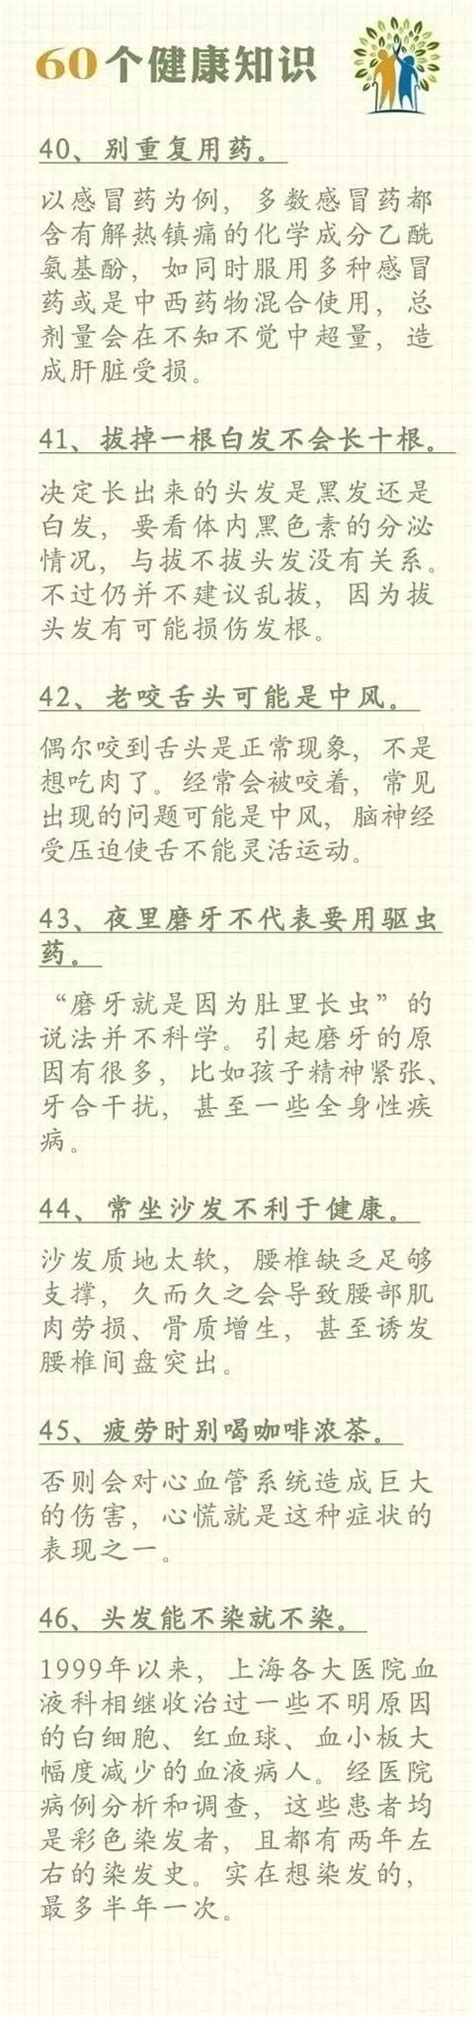 60个健康知识
40、别重复用药。
以感冒药为例，多数感冒药都
含有解热镇痛的化学成分乙酰
氨基酚，如同时服用多种感冒
药或是中西药物混合使用，总
剂量会在不知不觉中超量，造
成肝脏受损。
41、拔掉一根白发不会长十根。
决定长出来的头发是黑发还是
白发，要看体内黑色素的分泌
情况，与拔不拔头发没有关系。
不过仍并不建议乱拔，因为拔
头发有可能损伤发根。
42、老咬舌头可能是中风。
偶尔咬到舌头是正常现象，不是
想吃肉了。经常会被咬着，常见
出现的问题可能是中风，脑神经
受压迫使舌不能灵活运动。
43、夜里磨牙不代表要用驱虫
药。
“磨牙就是因为肚里长虫”的
说法并不科学。引起磨牙的原
因有很多，比如孩子精神紧张、
牙合干扰，甚至一些全身性疾
病。
44、常坐沙发不利于健康。
沙发质地太软，腰椎缺乏足够
支撑，久而久之会导致腰部肌
肉劳损、骨质增生，甚至诱发
腰椎间盘突出。
45、疲劳时别喝咖啡浓茶。
否则会对心血管系统造成巨大
的伤害，心慌就是这种症状的
表现之一。
46、头发能不染就不染。
1999年以来，上海各大医院血
液科相继收治过一些不明原因
的白细胞、红血球、血小板大
幅度减少的血液病人。经医院
病例分析和调查，这些患者均
是彩色染发者，且都有两年左
右的染发史。实在想染发的，
最多半年一次。